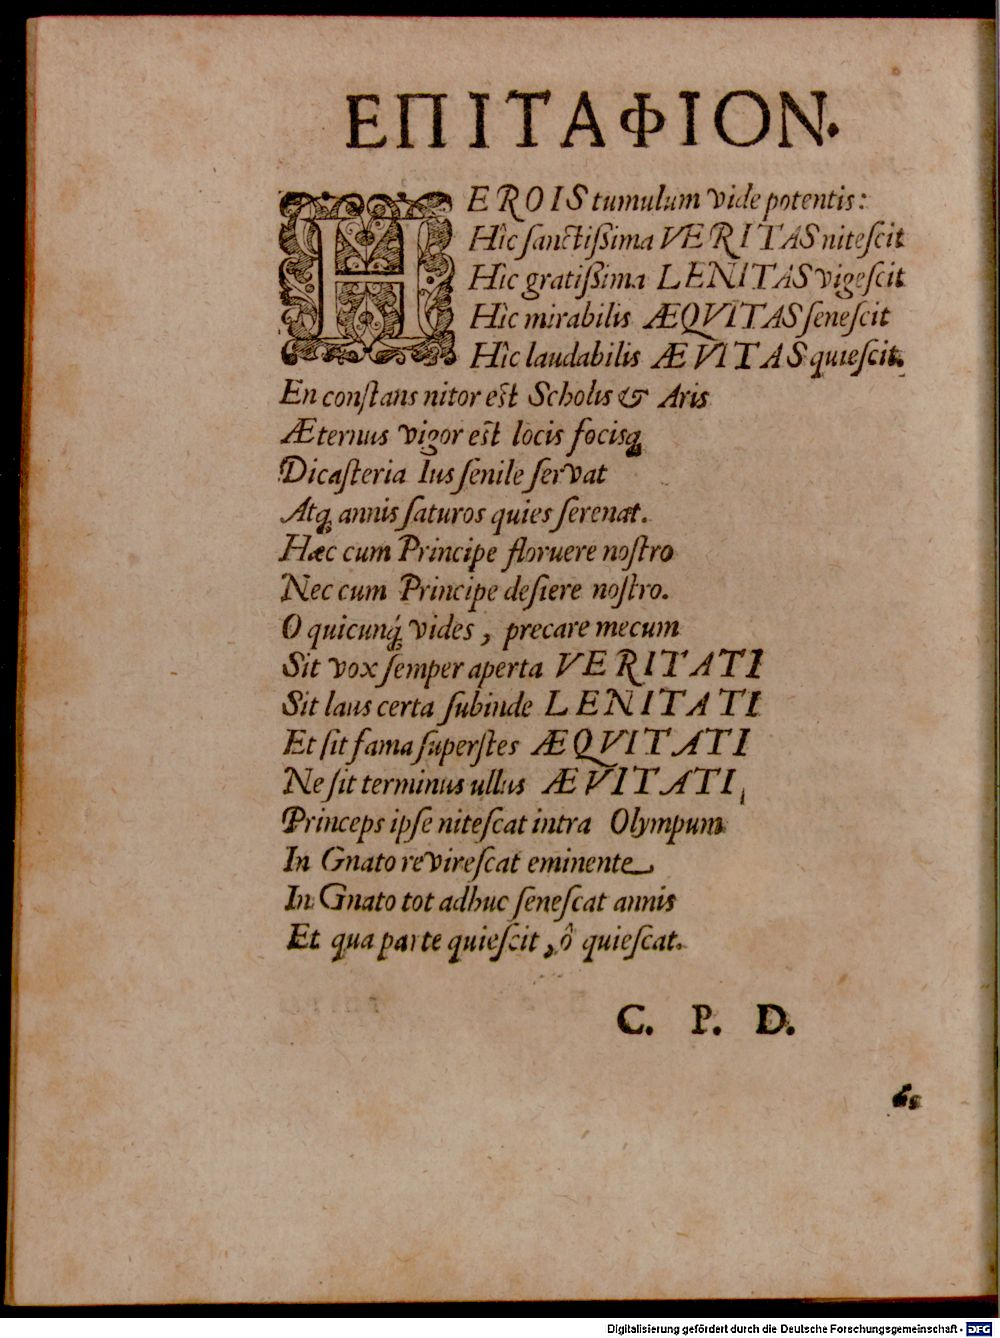 ΕΠΙΤΑΦΙΟΝ.
HEROIS tumulum vide potentis:
Hîc ſanctiſsima VERITAS niteſcit
Hîc gratiſsima LENITAS vigeſcit
Hîc mirabilis ÆQVITAS ſeneſcit
Hîc laudabilis ÆVITAS quieſcit.
En conſtans nitor est Scholis & Aris
Æternus vigor est locis focisq́
Dicaſteria Ius ſenile ſervat
Atq; annis ſaturos quies ſerenat.
Hæc cum Principe floruere noſtro
Nec cum Principe deſiere noſtro.
O quicunq́; vides, precare mecum
Sit vox ſemper aperta VERITATI
Sit laus certa ſubinde LENITATI
Et ſit fama ſuperſtes ÆQVITATI
Ne ſit terminus ullus ÆVITATI,
Princeps ipſe niteſcat intra Olympum
In Gnato revireſcat eminente
In Gnato tot adhuc ſeneſcat annis
Et qua parte quieſcit, ô quieſcat.
C. P. D.
Digitalisierung gefördert durch die Deutsche Forschungsgemeinschaft - DFG